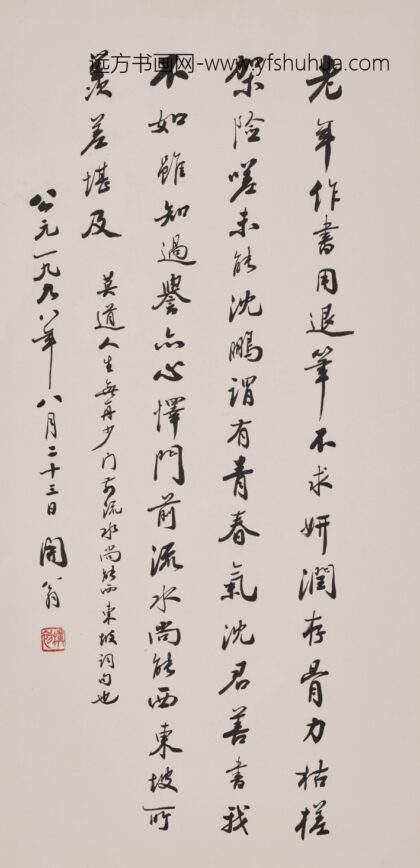 远方书画网-www.yfshuhua.com
老年作書用退筆不求妍潤存骨力枯槎
架險嗟未能沈鵬謂有青春氣沈君善書我
不如雖知過譽亦心懌門前流水尚能西東坡所
羨差堪及
莫道人生無再少门前流水尚能西東坡词句也
公元一九九八年八月二十三日 閑翁